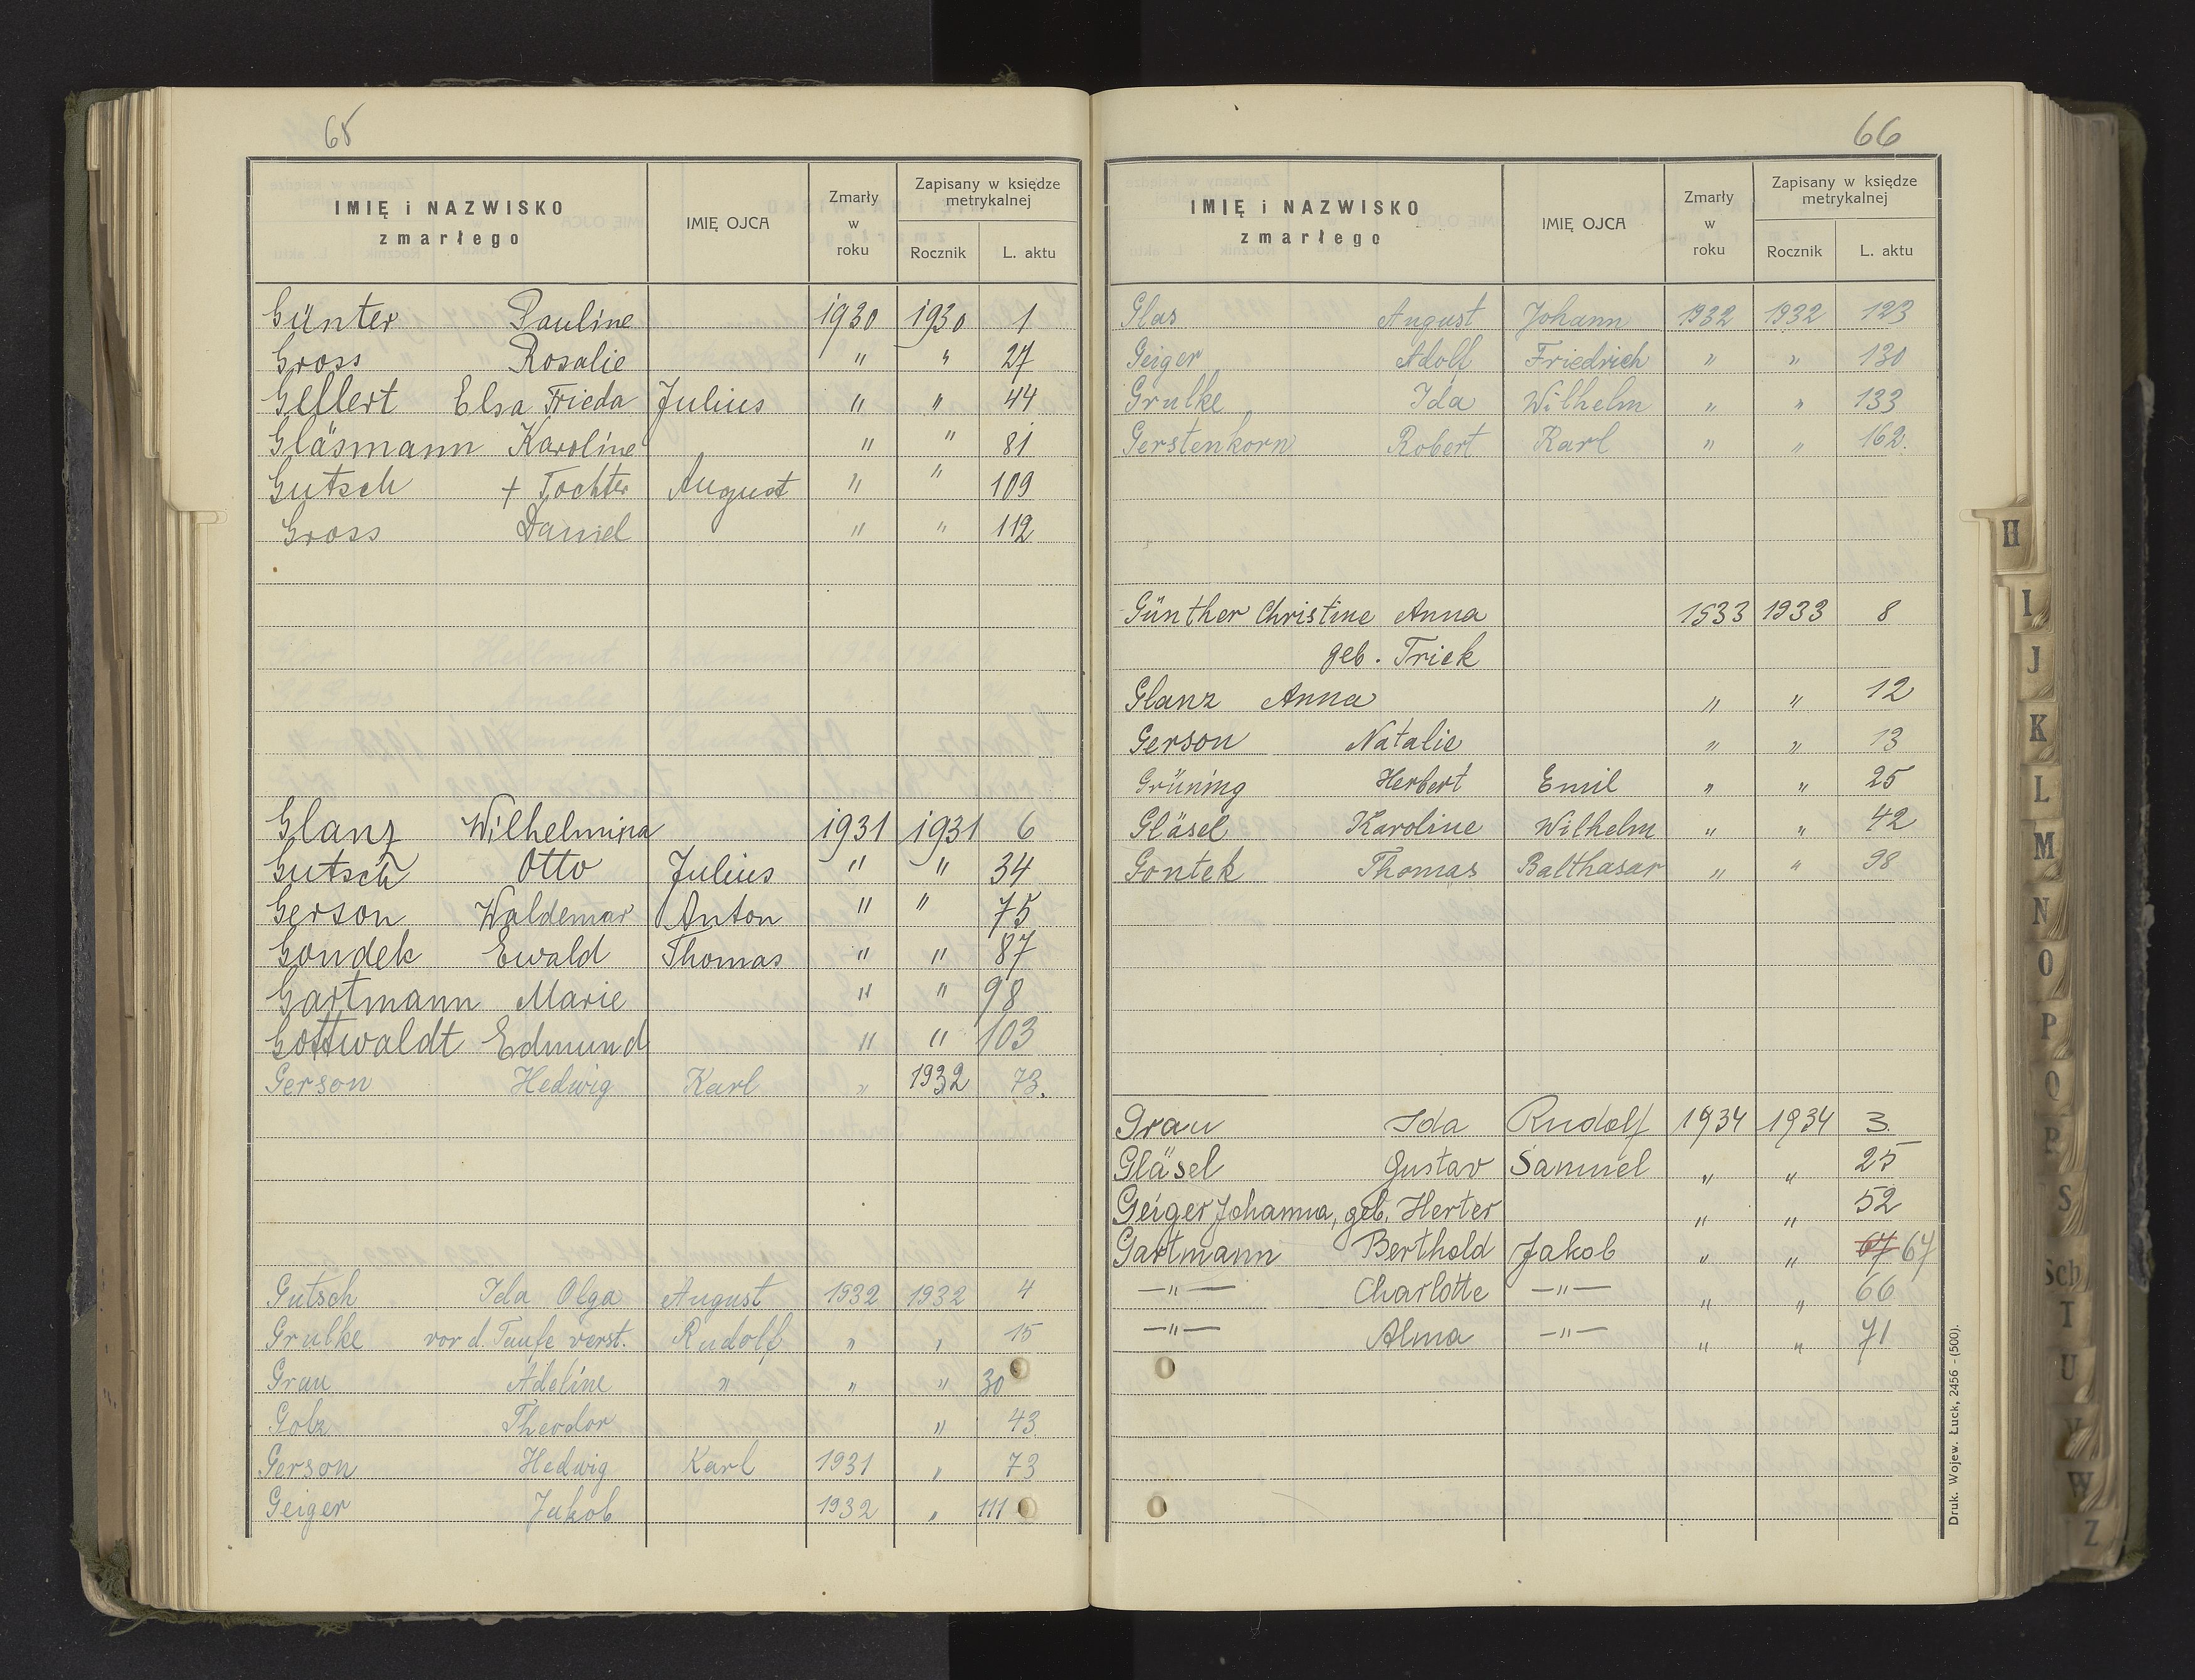 65
IMIĘ i NAZWISKO zmarłego IMIĘ OJCA Zmarły w roku Zapisany w księdze metrykalnej Rocznik L. aktu
Günter Pauline 1930 1930 1
Gross Rosalie " " 27
Gellert Elsa Frieda Julius " " 44
Gläsmann Karoline " " 81
Gutsch + Tochter August " " 109
Gross Daniel " " 112
Glanz Wilhelmina 1931 1931 6
Gutsch Otto Julius " " 34
Gerson Waldemar Anton " " 75
Gondek Ewald Thomas " " 87
Gartmann Marie " " 98
Gottwaldt Edmund " " 103
Gerson Hedwig Karl " 1932 73.
Gutsch Ida Olga August 1932 1932 4
Grulke vor d. Taufe verst. Rudolf " " 15
Grau Adeline " " " 30
Golz Theodor " 43
Gerson Hedwig Karl 1931 " 73
Geiger Jakob 1932 " 111
66
IMIĘ i NAZWISKO zmarłego IMIĘ OJCA Zmarły w roku Zapisany w księdze metrykalnej Rocznik L. aktu
Glas August Johann 1932 1932 123
Geiger Adolf Friedrich " " 130
Grulke Ida Wilhelm " " 133
Gerstenkorn Robert Karl " " 162.
Günther Christine Anna 1933 1933 8
geb. Triek
Glanz Anna " " 12
Gerson Natalie " " 13
Grüning Herbert Emil " " 25
Gläsel Karoline Wilhelm " " 42
Gontek Thomas Balthasar " " 98
Grau Ida Rudolf 1934 1934 3.
Gläsel Gustav Samuel " " 25
Geiger Johanna, geb. Herter " " 52
Gartmann Berthold Jakob " " 67 67
—"— Charlotte —"— " " 66
—"— Alma —"— " " 71
Druk. Wojew. Łuck, 2456 - (500).
H
I
J
K
L
M
N
O
P
Q
R
S
Sch
T
U
V
W
Z